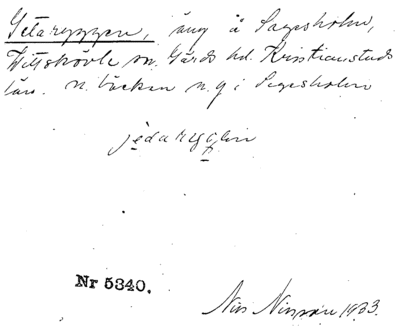 Getaryggen, äng å Sagesholm,
Vittskövle sn. Gärds hd. Kristianstads
län. N. backen n.g i Segesholm
jedarygen
Nr 5340.
Nils Nilsson 1933.